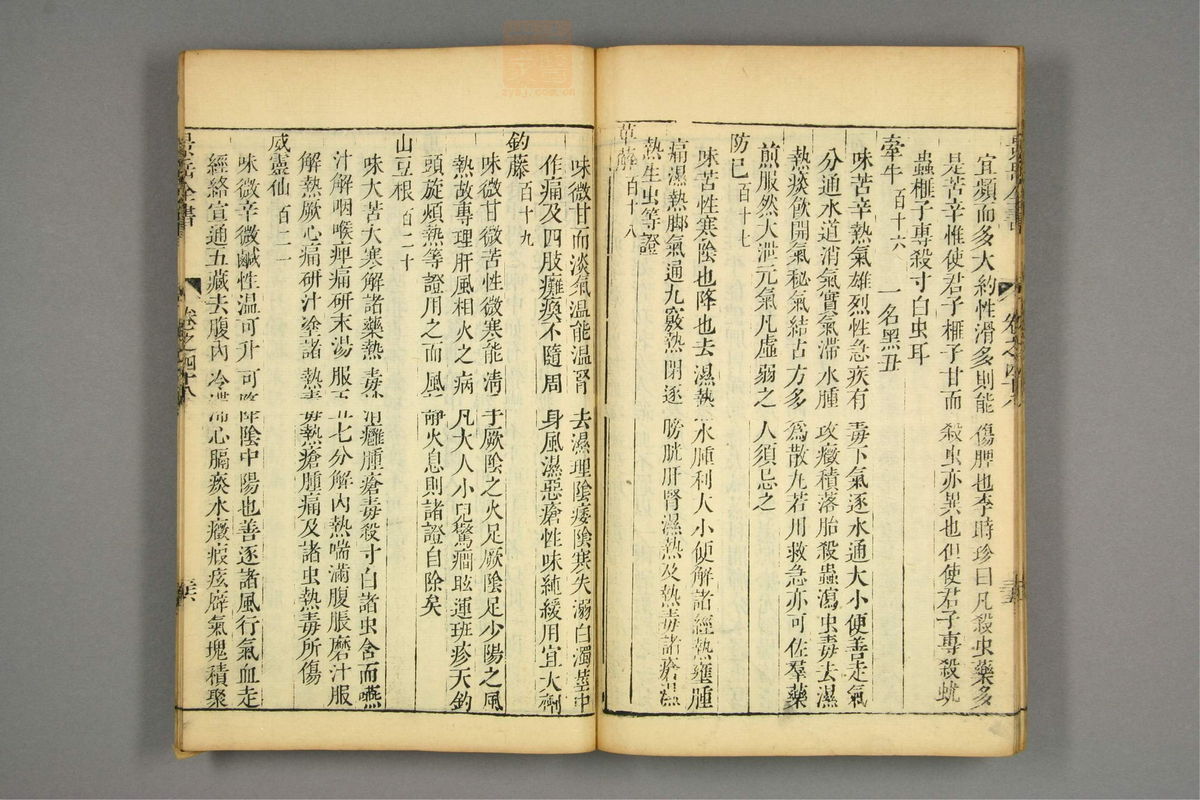 宜頻而多大約性滑多則能傷脾也李時珍曰凡殺虫藥多
是苦辛惟使君子榧子甘而殺虫亦異也但使君子專殺蚘
蟲榧子專殺寸白虫耳
牽牛百十六 一名黑丑
味苦辛熱氣雄烈性急疾有毒下氣逐水通大小便善走氣
分通水道消氣實氣滯水腫攻癥積落胎殺蟲瀉虫毒去濕
熱痰飲開氣秘氣結古方多爲散丸若用救急亦可佐羣藥
煎服然大泄元氣凡虛弱之人須忌之
防己百十七
味苦性寒陰也降也去濕熱水腫利大小便解諸經熱壅腫
痛濕熱脚氣通九竅熱閉逐膀胱肝腎濕熱及熱毒諸瘡濕
熱生虫等證
萆薢百十八
味微甘而淡氣温能温腎去濕理陰痿陰寒失溺白濁莖中
作痛及四肢癱瘓不隨周身風濕惡瘡性味純緩用宜大劑
釣藤百十九
味微甘微苦性微寒能清手厥陰之火足厥陰足少陽之風
熱故專理肝風相火之病凡大人小兒驚癇眩運班疹天釣
頭旋煩熱等證用之而風靜火息則諸證自除矣
山豆根百二十
味大苦大寒解諸藥熱毒消癰腫瘡毒殺寸白諸虫含而嚥
汁解咽喉痺痛研末湯服五七分解內熱喘滿腹脹磨汁服
解熱厥心痛研汁塗諸熱毒熱瘡腫痛及諸虫熱毒所傷
威靈仙百二一
味微辛微鹹性温可升可降陰中陽也善逐諸風行氣血走
經絡宣通五藏去腹內冷滯心膈痰水癥瘕痃癖氣塊積聚
景岳全書
卷之四十八
三五
景岳全書
卷之四十八
三六